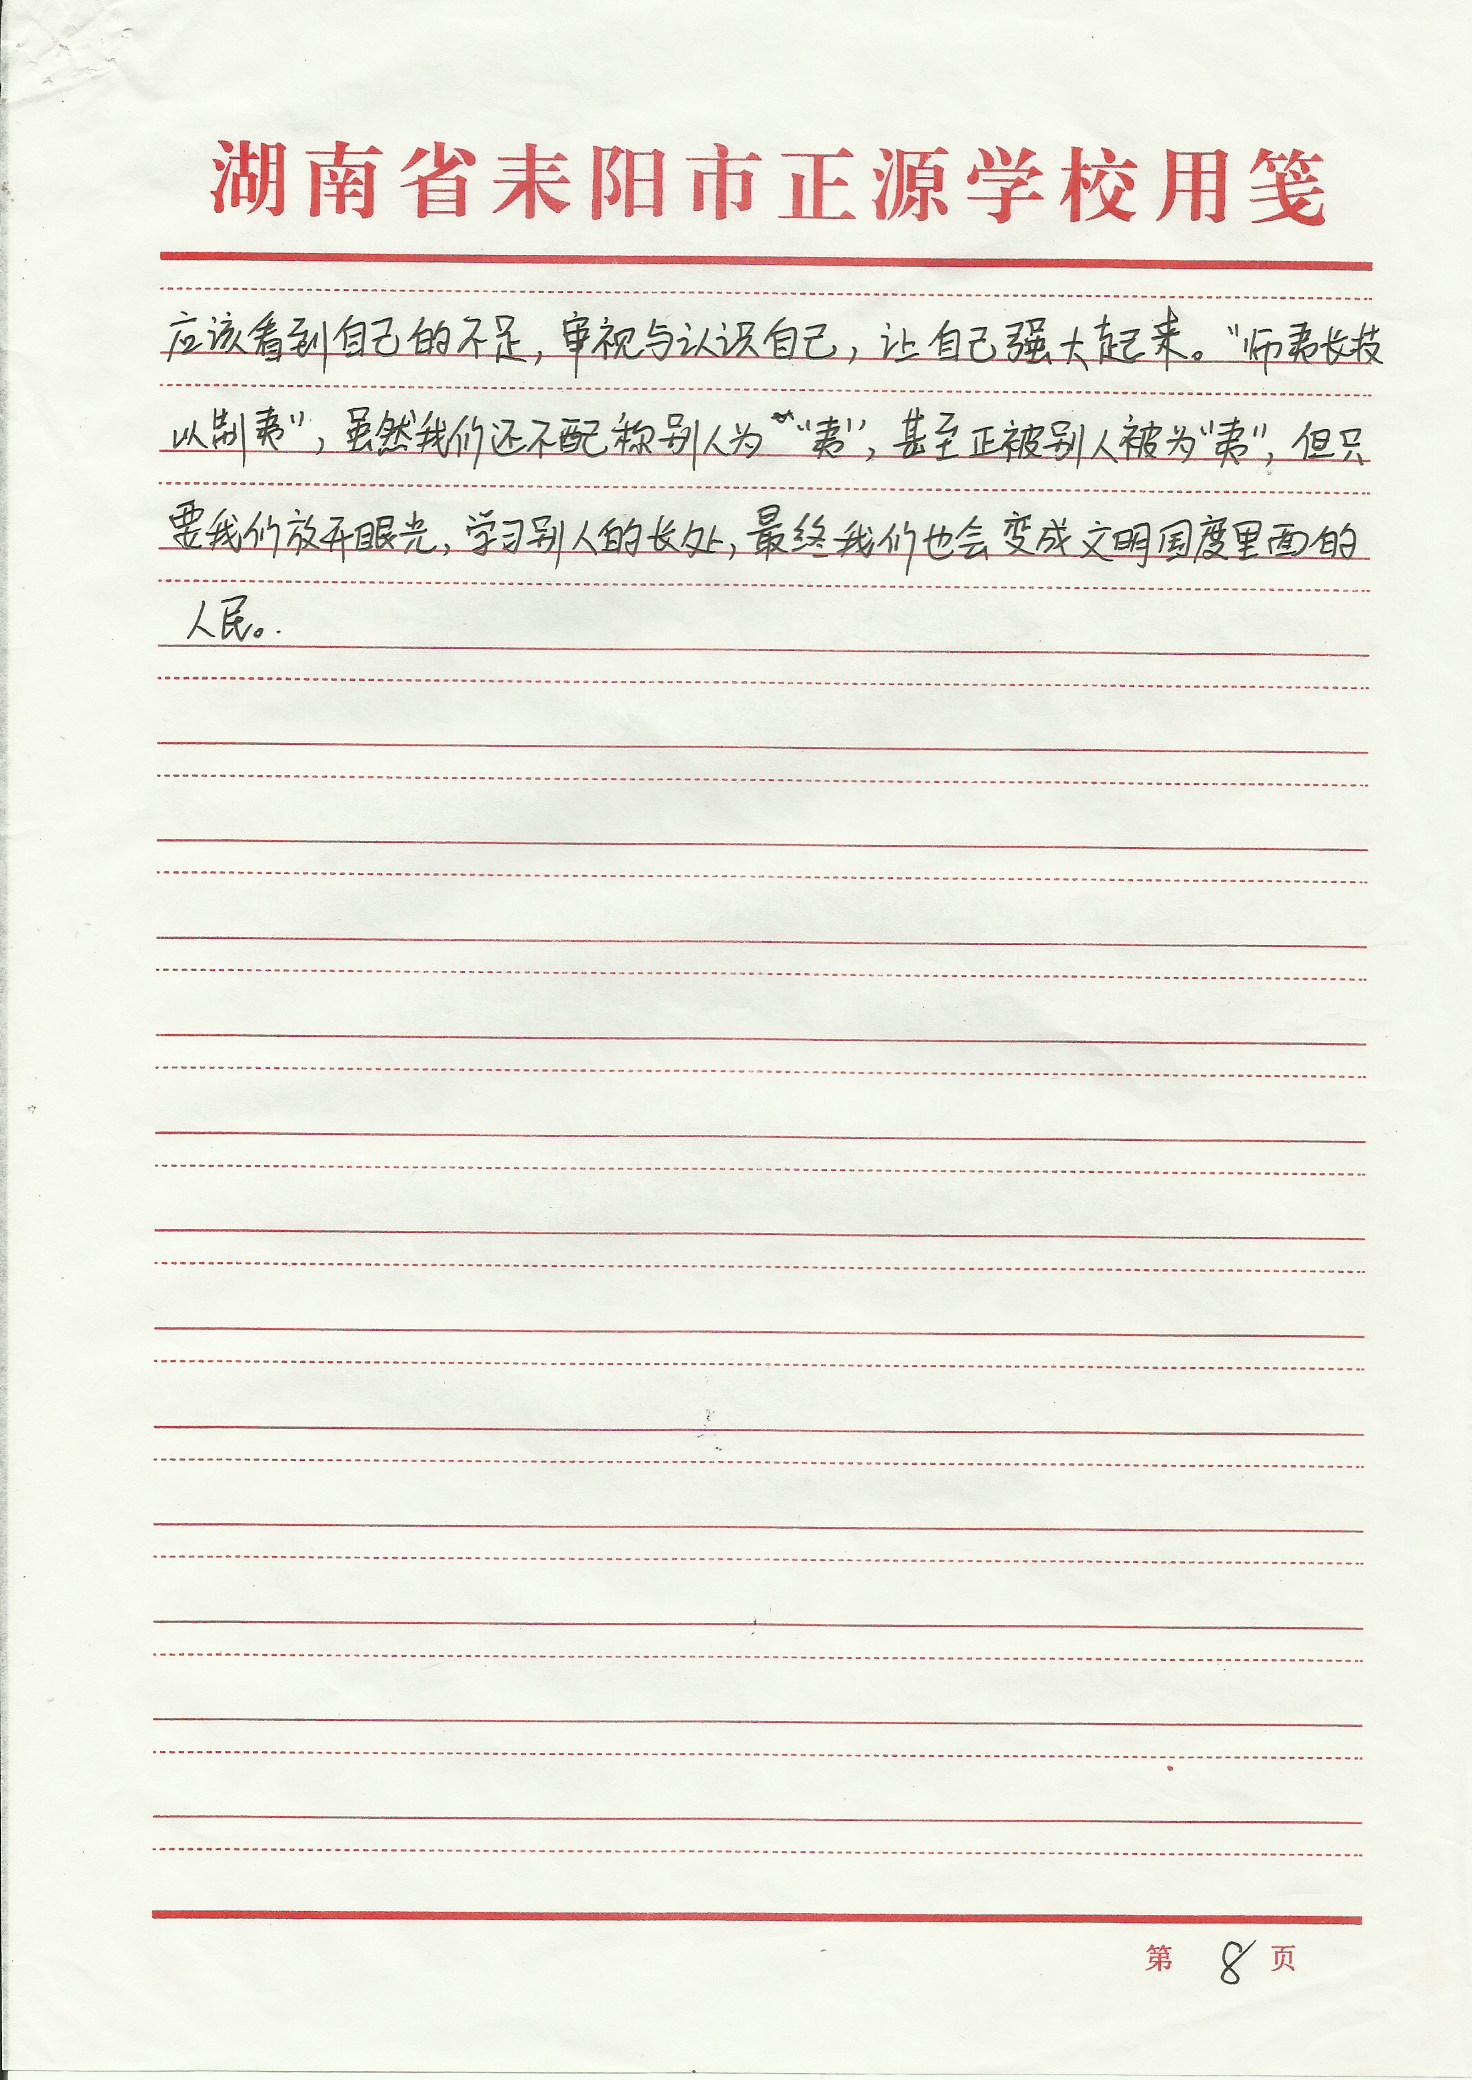 湖南省耒阳市正源学校用笺
应该看到自己的不足，审视与认识自己，让自己强大起来。“师夷长技
以制夷”，虽然我们还不配称别人为“夷”，甚至正被别人被为“夷”，但只
要我们放开眼光，学习别人的长处，最终我们也会变成文明国度里面的
人民。
第 8 页